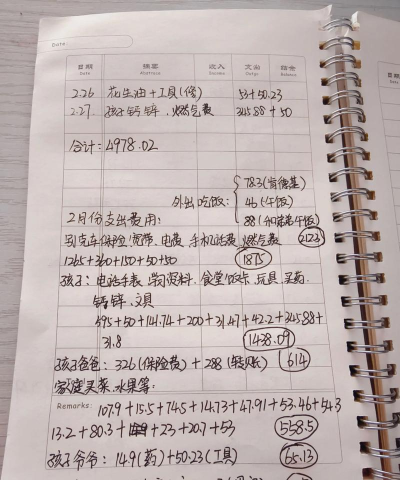 Date:
日期 摘要 收入 支出 结余
Date Abstracts Income Outgo Balance
2.26 花生油+工具(修) 53+50.23
2.27. 孩子钙锌、燃气费 345.88+50
合计:4978.02
78.3(肯德基)
外出吃饭: 46(午饭)
2月份支出费用: 88(和老老午饭)
别克车保险/宽带、电费、手机话费、燃气费 212.3
1265+360+150+50+50 1875
孩子:电话手表、学习资料、食堂饭卡、玩具、买药、
钙锌、文具
595+50+141.74+200+31.47+42.2+345.88+
31.8 1438.09
孩子爸爸:326(保险费)+288(转账) 614
家庭买菜、水果等:
Remarks: 107.9+15.5+74.5+14.73+47.91+53.46+54.3
13.2+80.3+ +23+20.7+53 558.5
孩子爷爷:14.9(药)+50.23(工具) 65.13